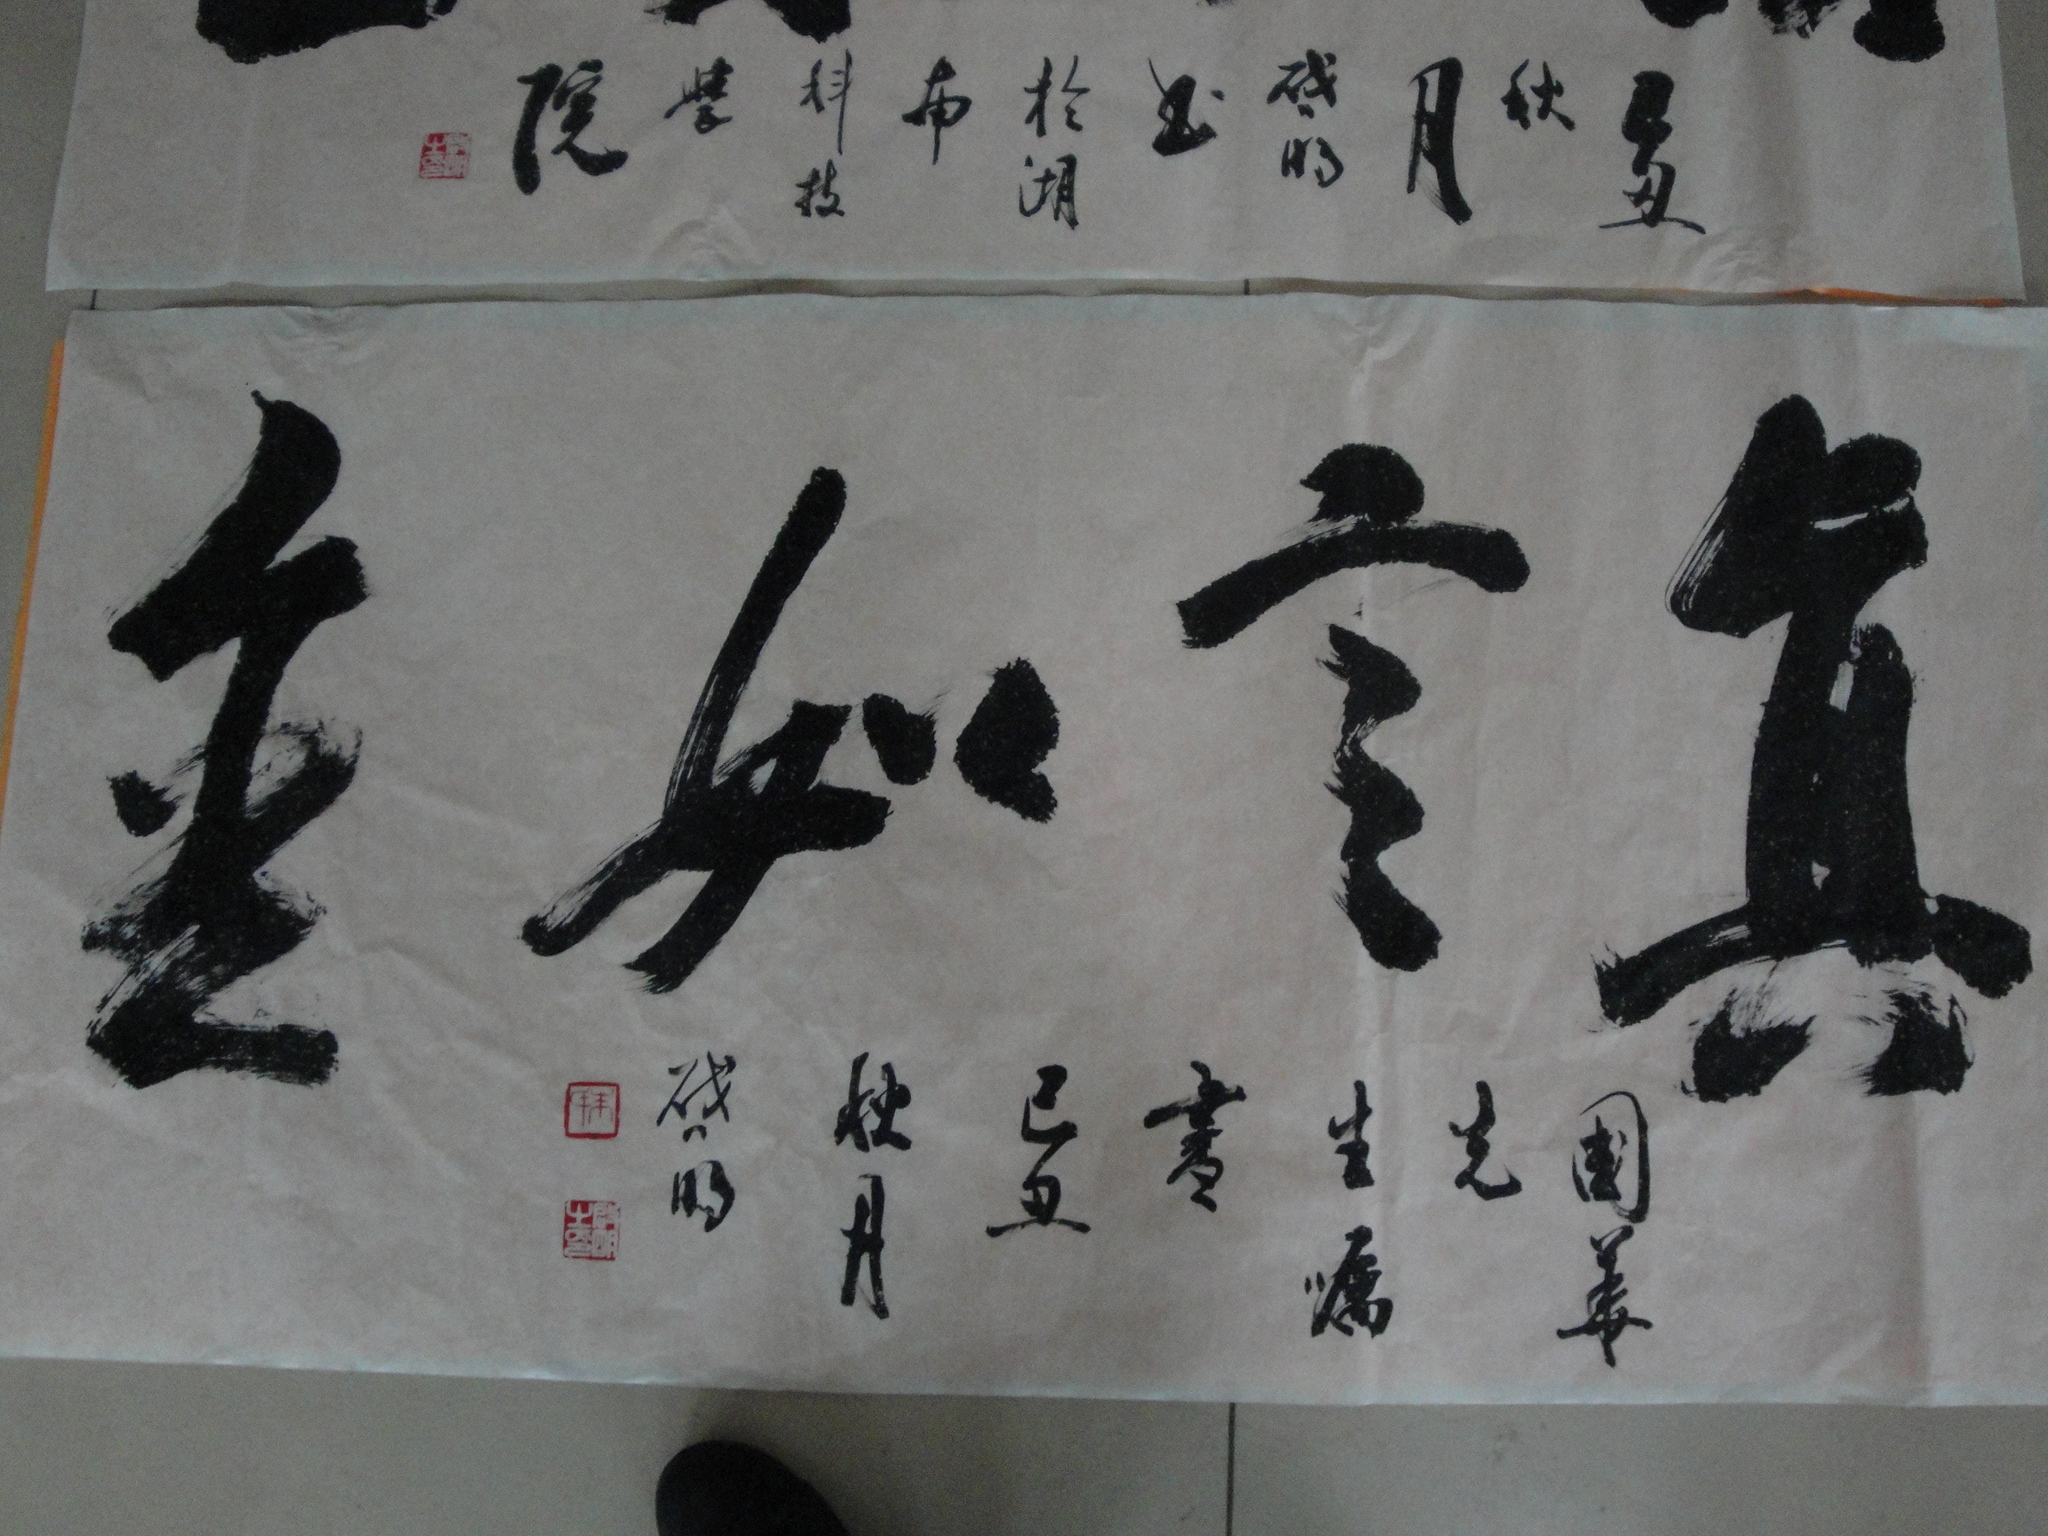 己丑
秋
月
啟明
书
於湖
南
科技
學
院
真言如金
國華
先
生嘱
書
己丑
秋月
啟明